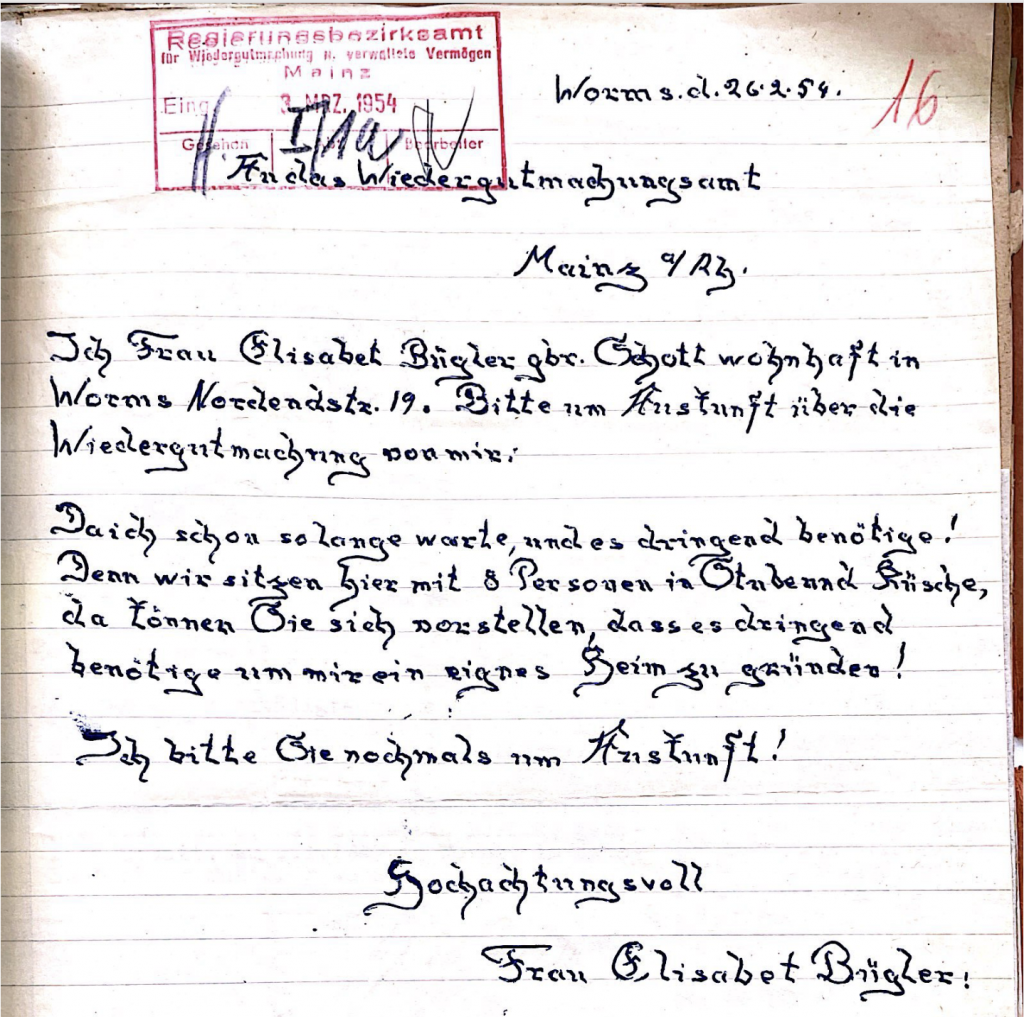 Regierungsbezirksamt
für Wiedergutmachung u. verwaltete Vermögen
Mainz
Eing. 3. MRZ. 1954
Gesehen Bearbeiter
I/1a
Worms.d.26.2.54.
16
An das Wiedergutmachungsamt
Mainz a/Rh.
Ich Frau Elisabet Bügler gbr. Schott wohnhaft in
Worms Nordendstr. 19. Bitte um Auskunft über die
Wiedergutmachung von mir.
Da ich schon so lange warte, und es dringend benötige!
Denn wir sitzen hier mit 8 Personen in Stube und Küsche,
da können Sie sich vorstellen, dass es dringend
benötige um mir ein eignes Heim zu gründen!
Ich bitte Sie nochmals um Auskunft!
Hochachtungsvoll
Frau Elisabet Bügler.